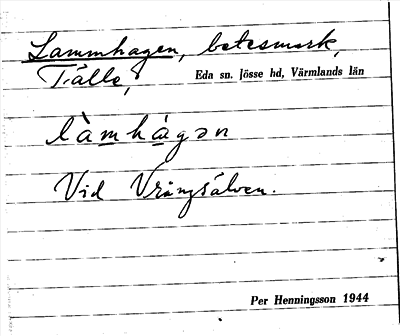 Lammhagen, betesmark,
Tälle, Eda sn. Jösse hd, Värmlands län
làmhágən
Vid Vrångsälven.
Per Henningsson 1944